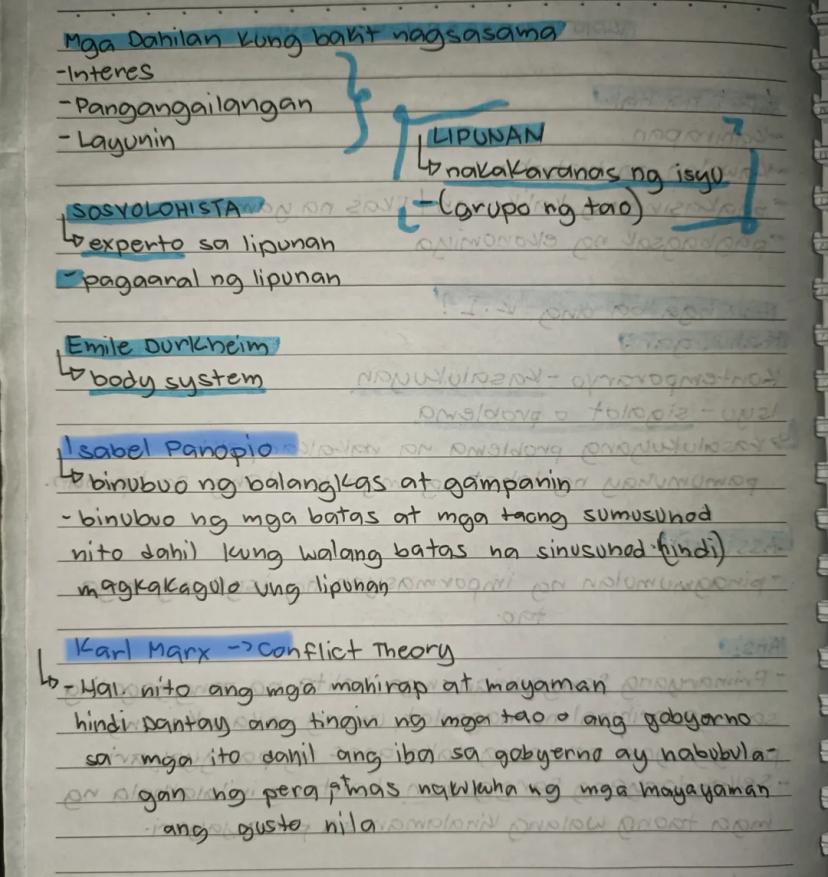 Mga Dahilan kung bakit nagsasama
-Interes
-Pangangailangan
-Layunin
LIPUNAN
↳nakakaranas ng isyu
-(grupo ng tao)
SOSYOLOHISTA
↳experto sa lipunan
-pagaaral ng lipunan
Emile Durkheim
↳body system
Isabel Panopio
↳binubuo ng balangkas at gampanin
-binubuo ng mga batas at mga taong sumusunod
nito dahil kung walang batas na sinusunod (hindi)
magkakagulo ung lipunan
Karl Marx -> Conflict Theory
↳-Hal. nito ang mga mahirap at mayaman
hindi pantay ang tingin ng mga tao o ang gobyerno
sa mga ito dahil ang iba sa gobyerno ay nabubula-
gan ng pera, mas nakukuha ng mga mayayaman
ang gusto nila